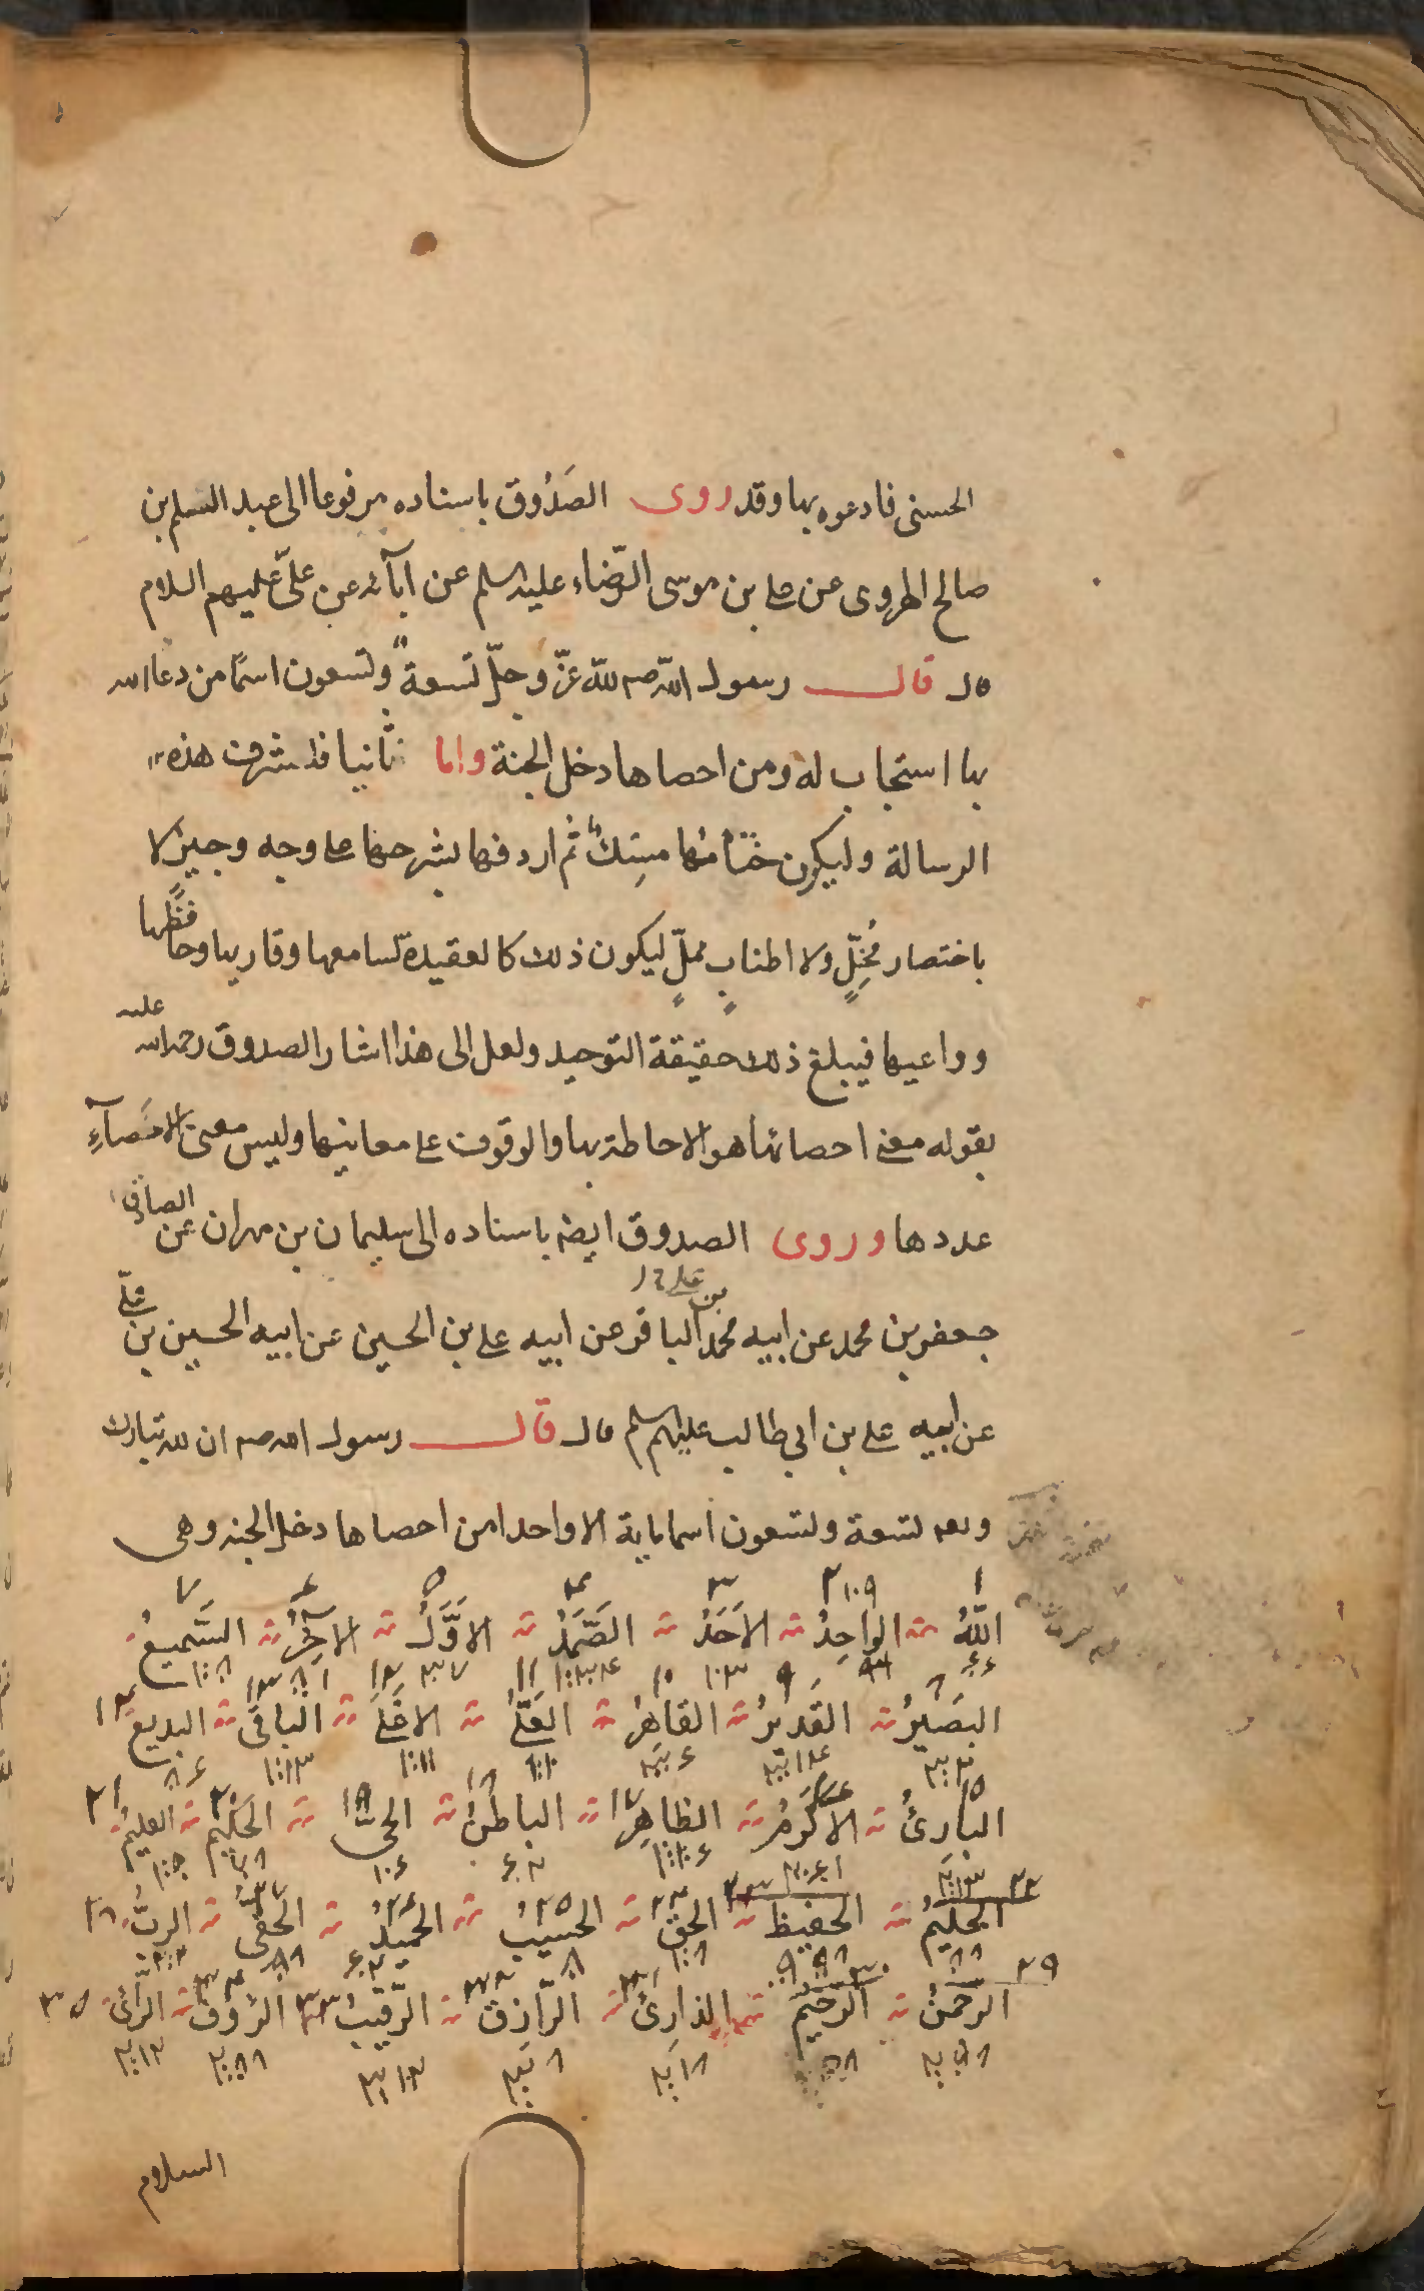 الحسنى فادعوه بها وقد روى الصَدُوق باسناده مرفوعا الى عبد السلم بن
صالح الهروى عن على بن موسى الرّضاء عليه السلم عن ابآئه عن علىّ عليهم السلام
قال قال رسول اللّه صم للّه عزّ وجلّ تسعةً وتسعون اسمًا من دعا الله
بها استجاب له ومن احصاها دخل الجنة واما ثانيا فلشرف هذه
الرسالة وليكون ختامُها مِسكٌ ثم اردفها بشرحها على وجه وجيز لا
باختصار مُخِلٍّ ولا اطنابٍ مملٍّ ليكون ذلك كالعقيدة لسامعها وقاريها وحافظها
وواعيها فيبلغ ذلك حقيقة التوحيد ولعل الى هذا اشار الصدوق رحمه الله عليه
بقوله معنى احصائها هو الاحاطة بها والوقوف على معانيها وليس معنى الاحصآءِ
عددها وروى الصدوق ايضا باسناده الى سليمان بن مهران عن الصادق
جعفر بن محمد عن ابيه محمد بن على الباقر عن ابيه على بن الحسين عن ابيه الحسين بن علىّ
عن ابيه على بن ابي طالب عليهم السلم قال قال رسول الله صم ان لله تبارك
وتعه تسعة وتسعون اسما ماية الا واحدا من احصاها دخل الجنه وهى
اللّهُ الواحِدُ الاَحَدُ الصَّمَدُ الاَوَّلُ الآخِرُ السَّميعُ
البَصيرُ القَديرُ القاهِرُ العَلىُّ الاعْلىَ الباقى البديعُ
البارئُ الاكرَمُ الظاهِرُ الباطنُ الحىُّ الحَكيمُ العليمُ
الحَليمُ الحفيظ الحقُّ الحَسيبُ الحَميدُ الحَفىُّ الربُّ
الرَّحمنُ الرَّحيمُ الذارئُ الرّازقُ الرّقيبُ الرؤُفُ الرّائى
السلام